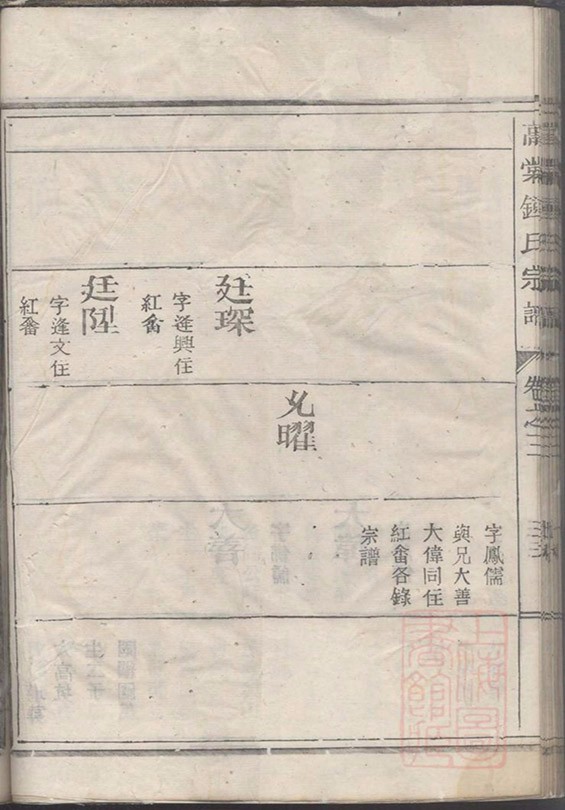 鍾氏宗譜
卷之三
廷琛
字逢興住
紅畬
廷陞
字逢文住
紅畬
曜
字鳳儒
與兄大善
大偉同住
紅畬各錄
宗譜
上海圖
書館藏